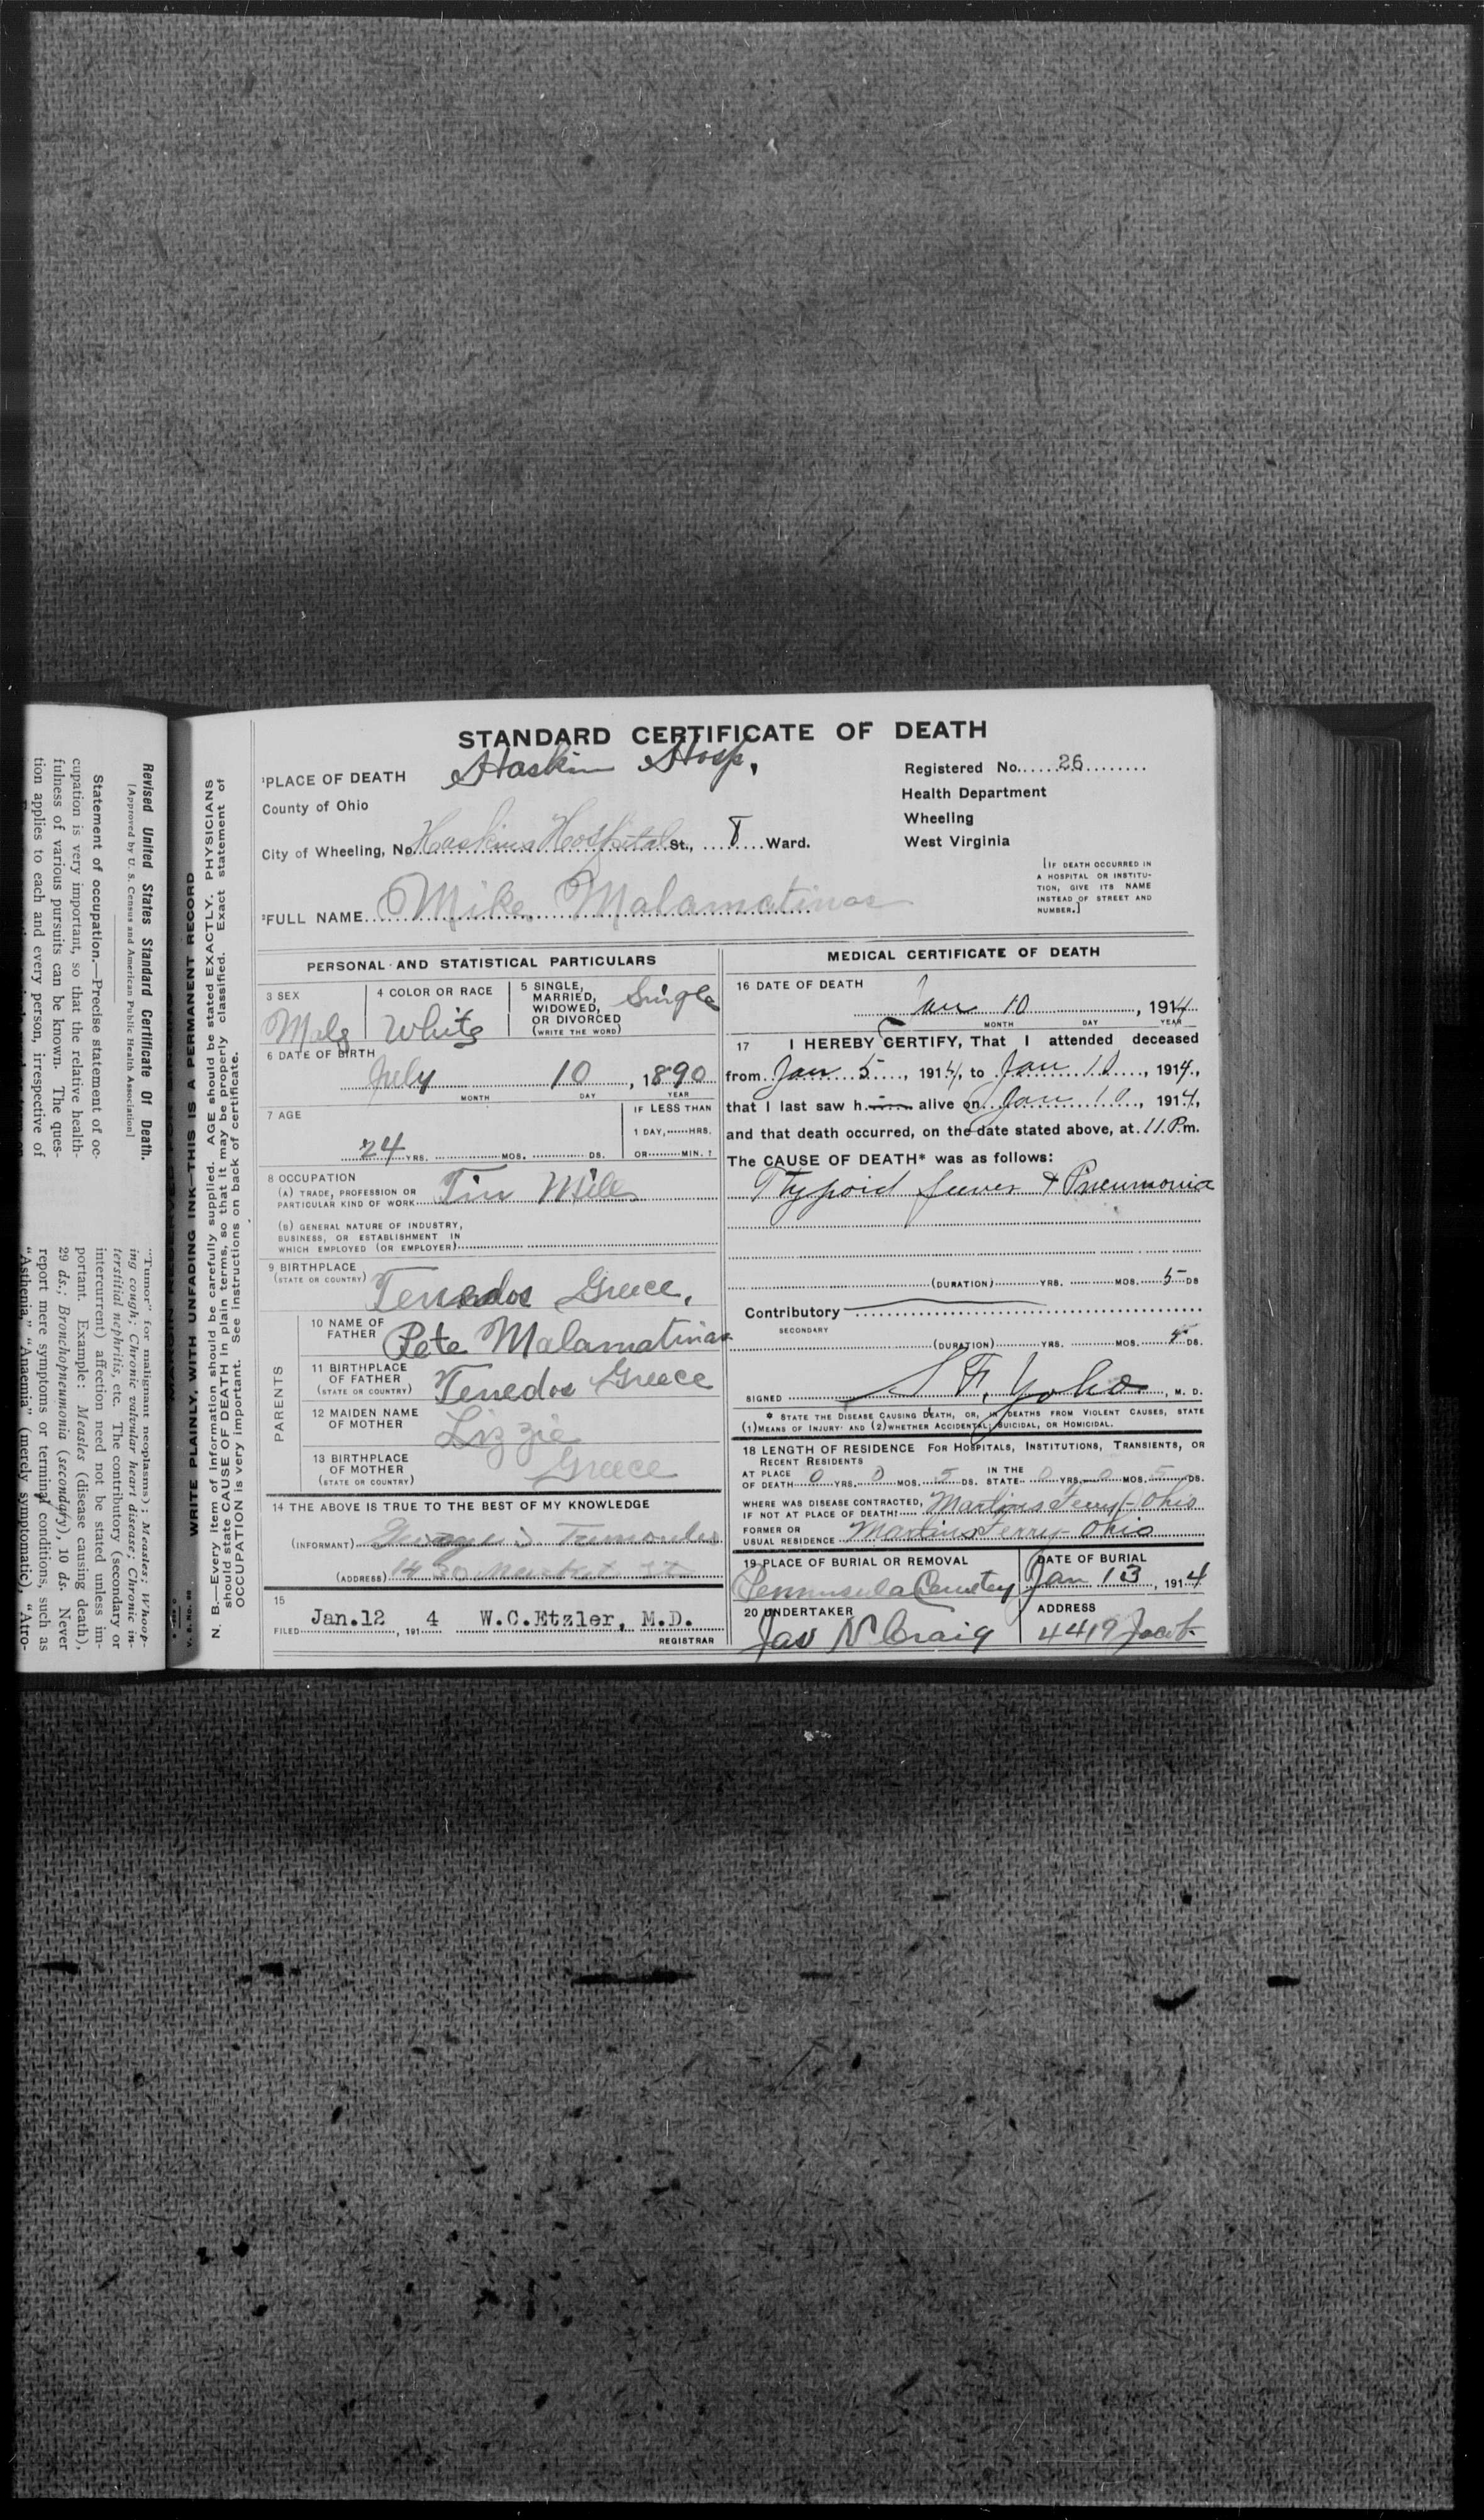 STANDARD CERTIFICATE OF DEATH
Haskin Hosp.
1PLACE OF DEATH
County of Ohio
City of Wheeling, No. Haskins Hospital St., 8 Ward.
Registered No. 26
Health Department
Wheeling
West Virginia
[IF DEATH OCCURRED IN
A HOSPITAL OR INSTITU-
TION, GIVE ITS NAME
INSTEAD OF STREET AND
NUMBER.]
2FULL NAME Mike Malamatinas
PERSONAL AND STATISTICAL PARTICULARS
3 SEX
Male
4 COLOR OR RACE
White
5 SINGLE,
MARRIED,
WIDOWED,
OR DIVORCED
(WRITE THE WORD)
Single
6 DATE OF BIRTH
July 10, 1890
MONTH DAY YEAR
7 AGE
24 YRS. MOS. DS.
IF LESS THAN
1 DAY, HRS.
OR MIN. ?
8 OCCUPATION
(A) TRADE, PROFESSION OR
PARTICULAR KIND OF WORK Tin Mill
(B) GENERAL NATURE OF INDUSTRY,
BUSINESS, OR ESTABLISHMENT IN
WHICH EMPLOYED (OR EMPLOYER)
9 BIRTHPLACE
(STATE OR COUNTRY) Tenedos Greece,
PARENTS
10 NAME OF
FATHER Pete Malamatinas
11 BIRTHPLACE
OF FATHER
(STATE OR COUNTRY) Tenedos Greece
12 MAIDEN NAME
OF MOTHER Lizzie
13 BIRTHPLACE
OF MOTHER
(STATE OR COUNTRY) Greece
14 THE ABOVE IS TRUE TO THE BEST OF MY KNOWLEDGE
(INFORMANT)
(ADDRESS) 1430 Market St
15
FILED Jan.12, 1914 W.C.Etzler, M.D.
REGISTRAR
MEDICAL CERTIFICATE OF DEATH
16 DATE OF DEATH
Jan 10, 1914
MONTH DAY YEAR
17 I HEREBY CERTIFY, That I attended deceased
from Jan 5, 1914, to Jan 10, 1914,
that I last saw him alive on Jan 10, 1914,
and that death occurred, on the date stated above, at 11 P.m.
The CAUSE OF DEATH* was as follows:
Thypoid feever & Pneumonia
(DURATION) YRS. MOS. 5 DS
Contributory
SECONDARY
(DURATION) YRS. MOS. DS.
SIGNED S F. Yoho, M. D.
* STATE THE DISEASE CAUSING DEATH, OR, IN DEATHS FROM VIOLENT CAUSES, STATE
(1)MEANS OF INJURY AND (2)WHETHER ACCIDENTAL, SUICIDAL, OR HOMICIDAL.
18 LENGTH OF RESIDENCE FOR HOSPITALS, INSTITUTIONS, TRANSIENTS, OR
RECENT RESIDENTS
AT PLACE OF DEATH 0 YRS. 0 MOS. 5 DS. IN THE STATE 0 YRS. 0 MOS. 5 DS.
WHERE WAS DISEASE CONTRACTED,
IF NOT AT PLACE OF DEATH? Martins Ferry - Ohio
FORMER OR
USUAL RESIDENCE Martins Ferry Ohio
19 PLACE OF BURIAL OR REMOVAL
Pennusula Cemetey
DATE OF BURIAL
Jan 13, 1914
20 UNDERTAKER
Jas N Craig
ADDRESS
4419 Jacob
V. S. No. 98
WRITE PLAINLY, WITH UNFADING INK—THIS IS A PERMANENT RECORD
N. B.—Every item of information should be carefully supplied. AGE should be stated EXACTLY. PHYSICIANS
should state CAUSE OF DEATH in plain terms, so that it may be properly classified. Exact statement of
OCCUPATION is very important. See instructions on back of certificate.
Revised United States Standard Certificate Of Death.
[Approved by U. S. Census and American Public Health Association]
Statement of occupation.—Precise statement of oc-
cupation is very important, so that the relative health-
fulness of various pursuits can be known. The ques-
tion applies to each and every person, irrespective of
"Tumor" for malignant neoplasms); Measles; Whoop-
ing cough; Chronic valvular heart disease; Chronic in-
terstitial nephritis, etc. The contributory (secondary or
intercurrent) affection need not be stated unless im-
portant. Example: Measles (disease causing death),
29 ds.; Bronchopneumonia (secondary), 10 ds. Never
report mere symptoms or terminal conditions, such as
"Asthenia," "Anaemia" (merely symptomatic), "Atro-